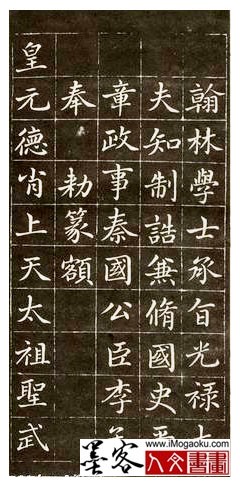 翰林學士承旨光禄
夫知制誥兼脩國史
章政事秦國公臣李
奉 勅篆額
皇元德肖上天太祖聖武
墨客
www.iMogaoku.com
人文書畫